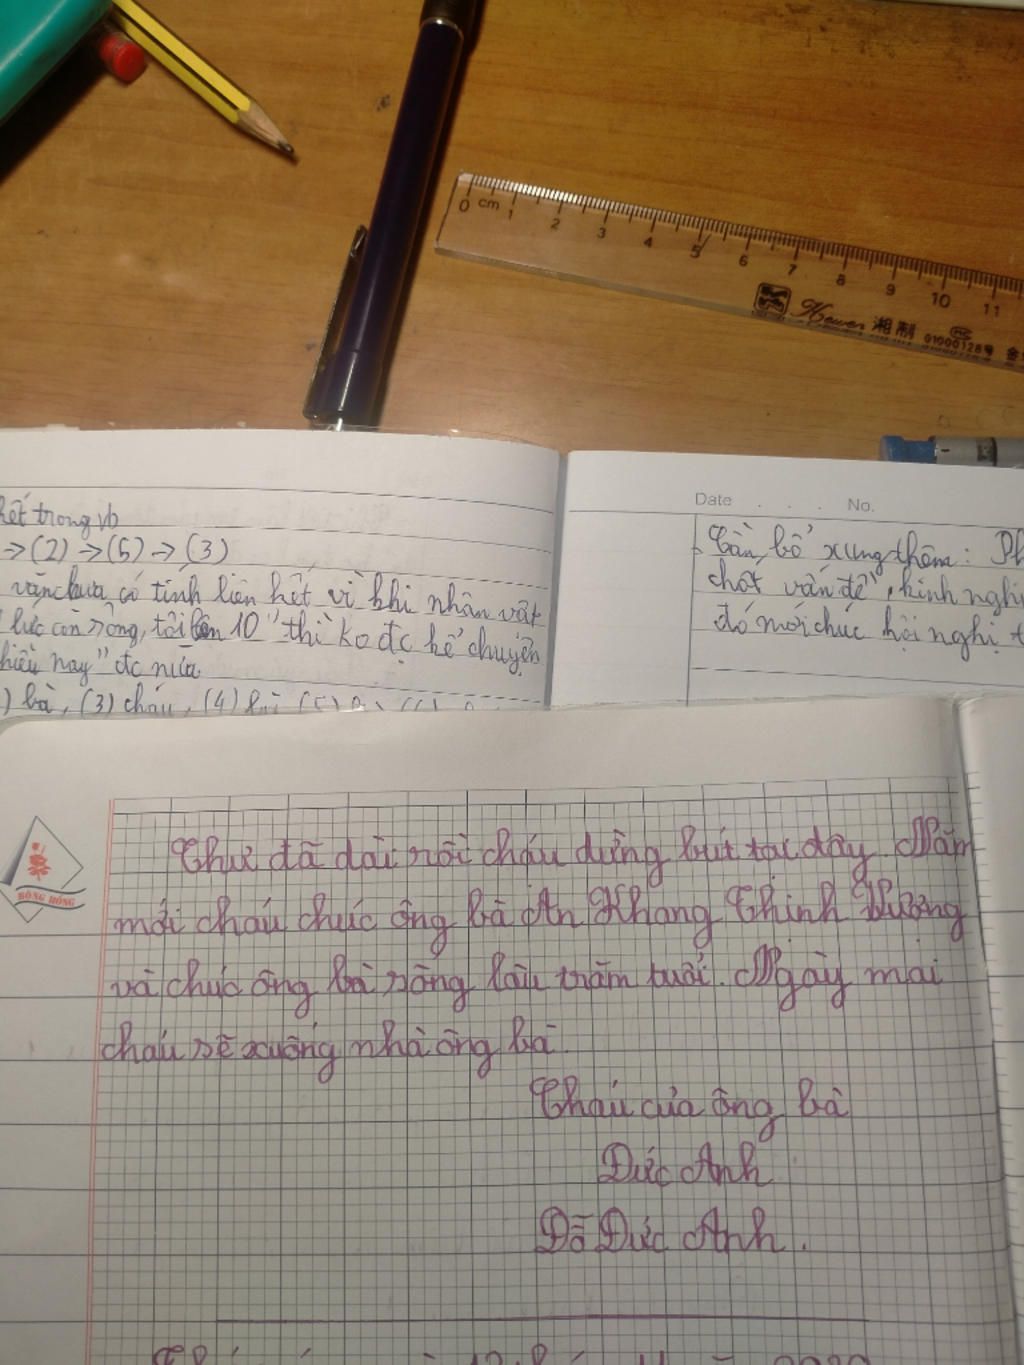 0 cm 1 2 3 4 5 6 7 8 9 10 11
Hewen 湘制 01000128号
MC
hết trong vb
→(2)→(5)→(3)
văn có tính liên kết vì khi nhân vật
lúc còn sống, tôi 10" thì ko đc kể chuyện
hiểu nay" đc nữa
) bà, (3) cháu, (4)
Date . . . No.
Cần bổ xung thêm: Ph
chốt vấn đề, kinh nghi
đó mới chúc hội nghị t
BÔNG HỒNG
Thư đã dài rồi cháu dừng bút tại đây. Năm
mới cháu chúc ông bà An Khang Thịnh Vương
và chúc ông bà sông lâu trăm tuổi. Ngày mai
cháu sẽ xuống nhà ông bà.
Cháu của ông bà
Đức Anh
Đỗ Đức Anh.